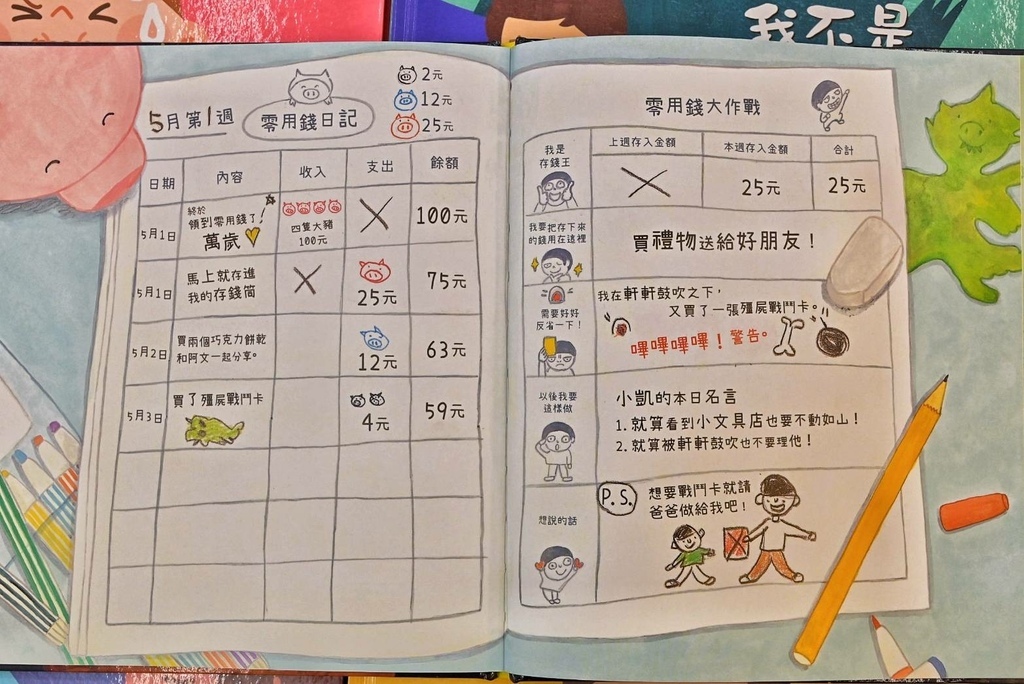 我不是
5月第1週
零用錢日記
2元
12元
25元
日期
內容
收入
支出
餘額
5月1日
終於
領到零用錢了!
萬歲
四隻大豬
100元
100元
5月1日
馬上就存進
我的存錢筒
25元
75元
5月2日
買兩個巧克力餅乾
和阿文一起分享。
12元
63元
5月3日
買了殭屍戰鬥卡
4元
59元
零用錢大作戰
我是
存錢王
上週存入金額
本週存入金額
合計
25元
25元
我要把存下來
的錢用在這裡
買禮物送給好朋友!
需要好好
反省一下!
我在軒軒鼓吹之下,
又買了一張殭屍戰鬥卡。
嗶嗶嗶嗶!警告。
以後我要
這樣做
小凱的本日名言
1. 就算看到小文具店也要不動如山!
2. 就算被軒軒鼓吹也不要理他!
想說的話
P.S.
想要戰鬥卡就請
爸爸做給我吧!